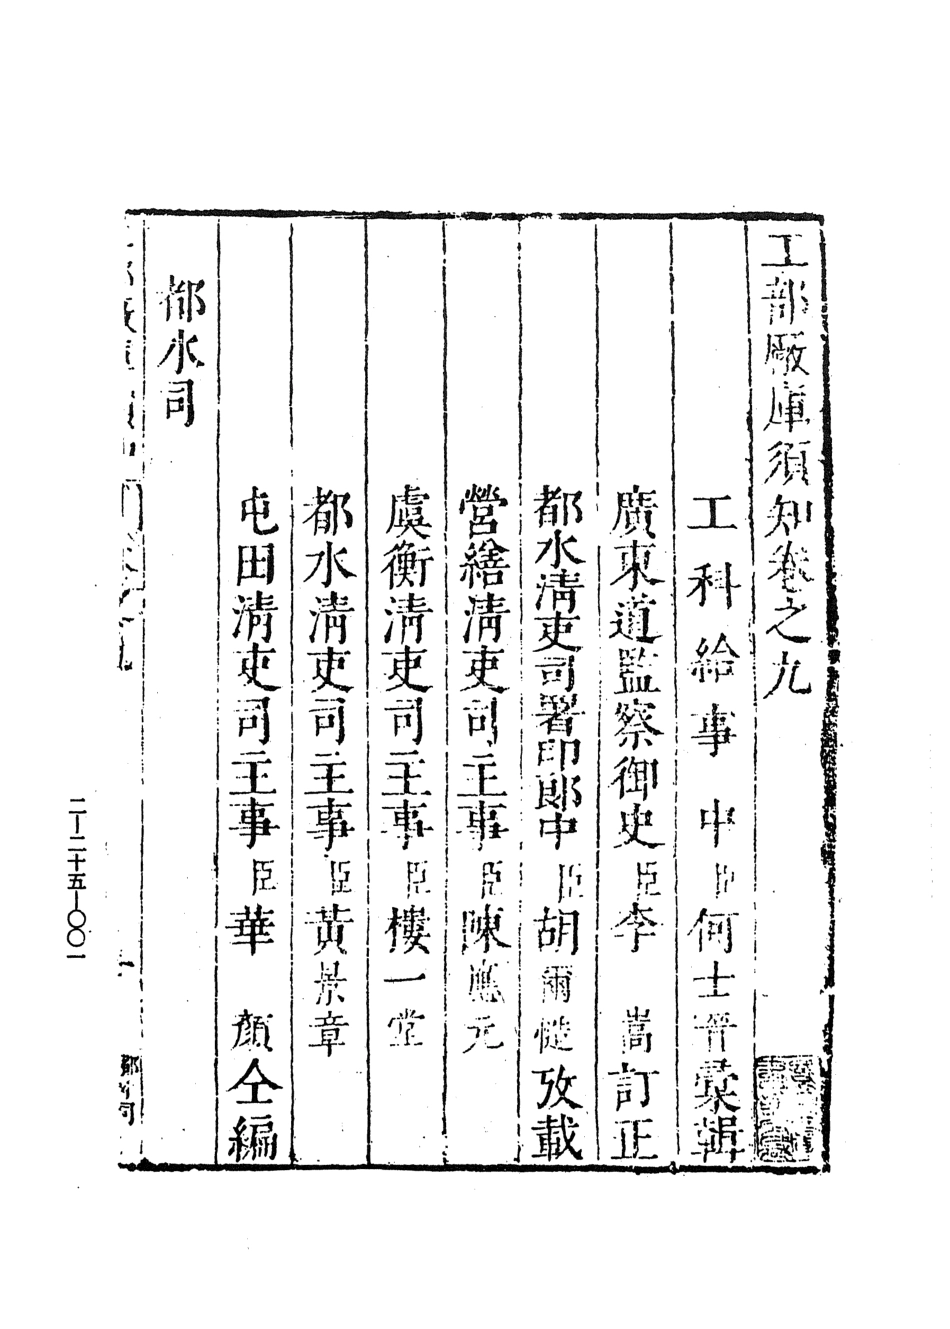 工部廠庫須知卷之九
工科給事中臣何士晉彙輯
廣東道監察御史臣李嵩訂正
都水清吏司署印郎中臣胡爾慥攷載
營繕清吏司主事臣陳應元
虞衡清吏司主事臣樓一堂
都水清吏司主事臣黃景章
屯田清吏司主事臣華顏仝編
都水司
二—二十五—〇〇一